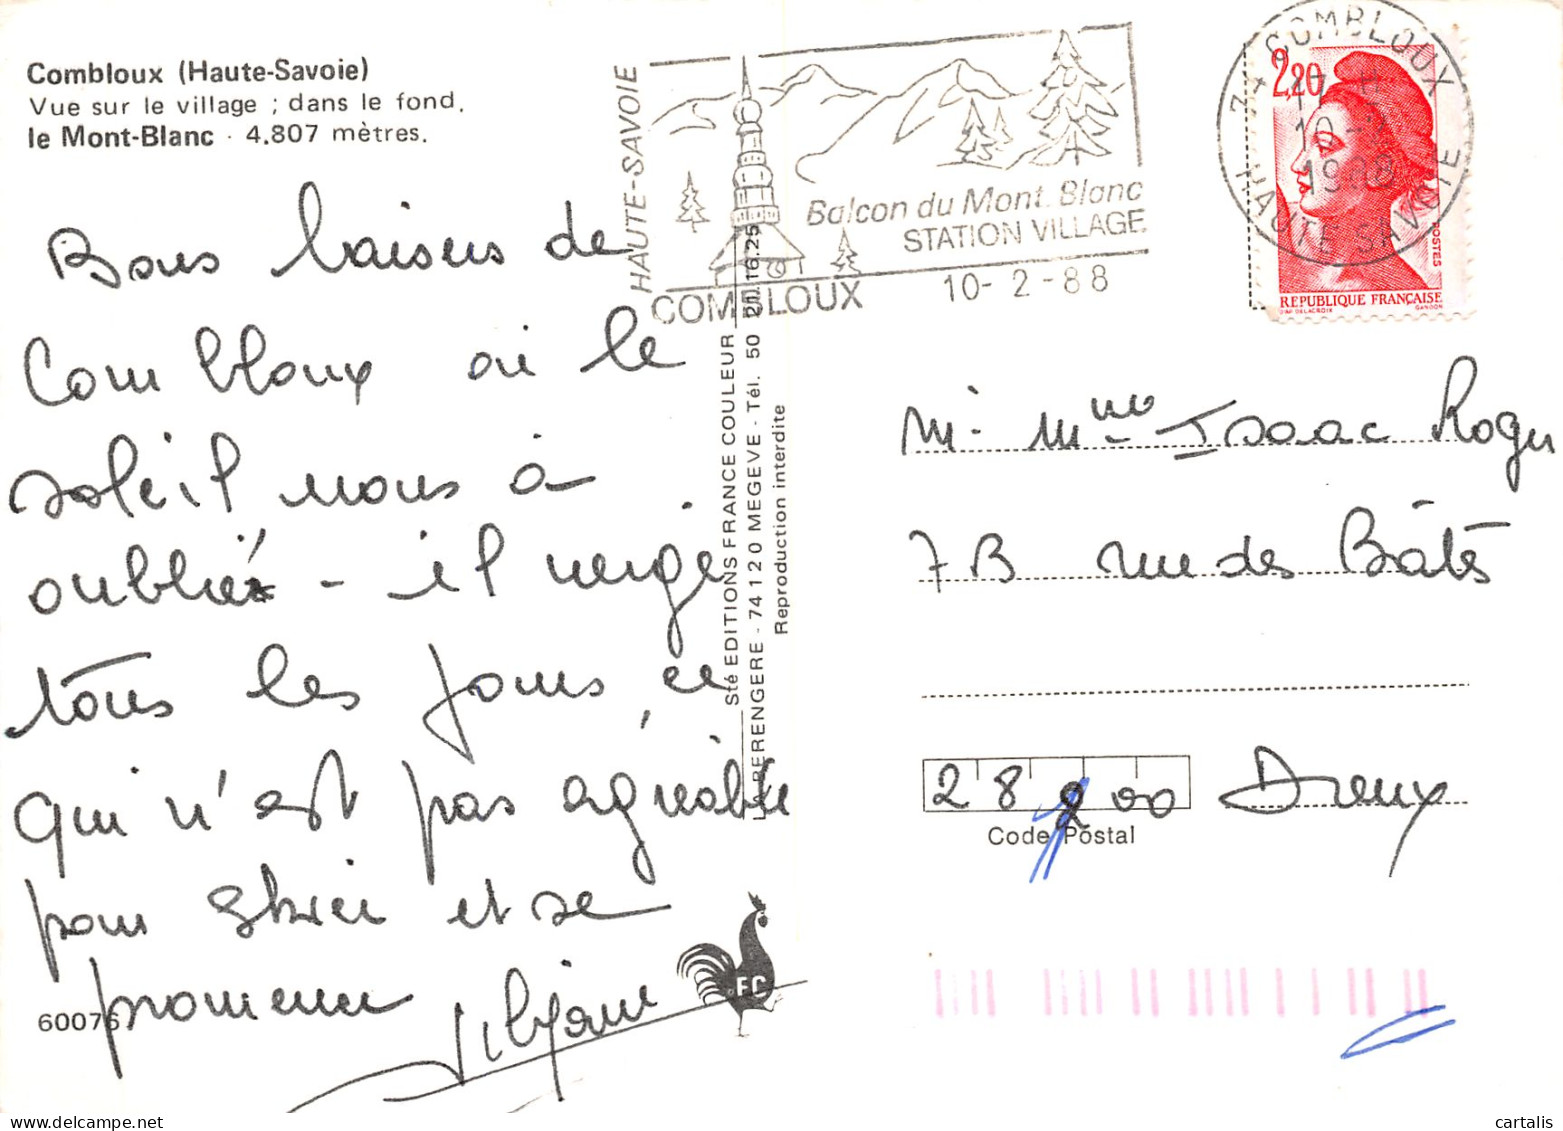 Combloux (Haute-Savoie)
Vue sur le village ; dans le fond,
le Mont-Blanc - 4.807 mètres.
HAUTE-SAVOIE
Balcon du Mont.Blanc
STATION VILLAGE
COMBLOUX
10-2-88
COMBLOUX
17 H
10-2
1988
HAUTE SAVOIE
2,20
POSTES
REPUBLIQUE FRANÇAISE
D'AP. DELACROIX
GANDON
Bons baisers de
Combloux où le
soleil nous à
oublié - il neige
tous les jours ce
qui n'est pas agréable
pour skier et se
promener
60076
Sté EDITIONS FRANCE COULEUR
LA BERENGERE - 74120 MEGEVE - Tél. 50 21.16.25
Reproduction interdite
FC
M. Mme Isaac Roger
7B rue des Bâtés
28 200 Dreux
Code Postal